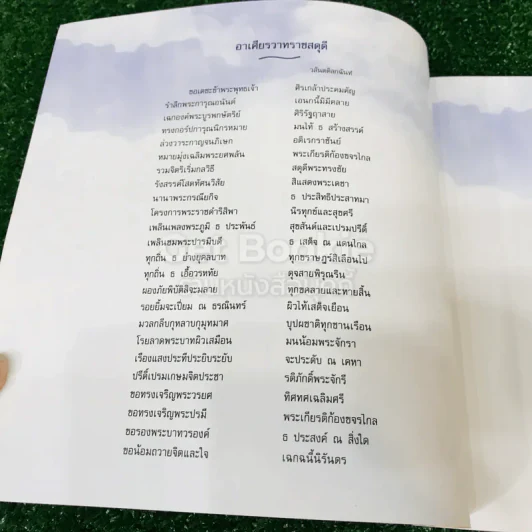 อาเศียรวาทราชสดุดี
วสันตดิลกฉันท์
ขอเดชะข้าพระพุทธเจ้า ศิรเกล้าประคมคัญ
รำลึกพระการุณอนันต์ เอนกนี้มิมีคลาย
เฉกองค์พระบูรพกษัตริย์ ศิริรัฐฤาสาย
ทรงกอร์ปการุณนิกรหมาย มนไท้ ธ สร้างสรรค์
ล่วงวาระกาญจนภิเษก อดิเรกราชันย์
หมายมุ่งเฉลิมพระยศพลัน พระเกียรติก้องขจรไกล
รวมจิตริเริ่มกลวิธี สดุดีพระทรงชัย
รังสรรค์โสตทัศนวิสัย สิแสดงพระเดชา
นานาพระกรณียกิจ ธ ประสิทธิประสาทมา
โครงการพระราชดำริสิพา นิรทุกข์และสุขศรี
เพลินเพลงพระภูมิ ธ ประพันธ์ สุขสันต์และเปรมปรีดิ์
เพลินชมพระปารมีบดี ธ เสด็จ ณ แดนไกล
ทุกถิ่น ธ ย่างยุคลบาท ทุกขราษฎร์สิเลือนไป
ทุกถิ่น ธ เอื้อวรหทัย ดุจสายพิรุณริน
ผองภัยพิบัติสิจะมลาย ทุกขคลายและหายสิ้น
รอยยิ้มจะเปี่ยม ณ ธรณินทร์ ผิวไท้เสด็จเยือน
มวลกลีบกุหลาบกุมุทมาศ บุปผชาติทุกชานเรือน
โรยลาดพระบาทผิวเสมือน มนน้อมพระจักรา
เรืองแสงประทีประยิบระยับ จะประดับ ณ เคหา
ปรีดิ์เปรมเกษมจิตประชา รติภักดิ์พระจักรี
ขอทรงเจริญพระวรยศ ทิศทศเฉลิมศรี
ขอทรงเจริญพระปรมี พระเกียรติก้องขจรไกล
ขอรองพระบาทวรองค์ ธ ประสงค์ ณ สิ่งใด
ขอน้อมถวายจิตและใจ เฉกฉนี้นิรันดร